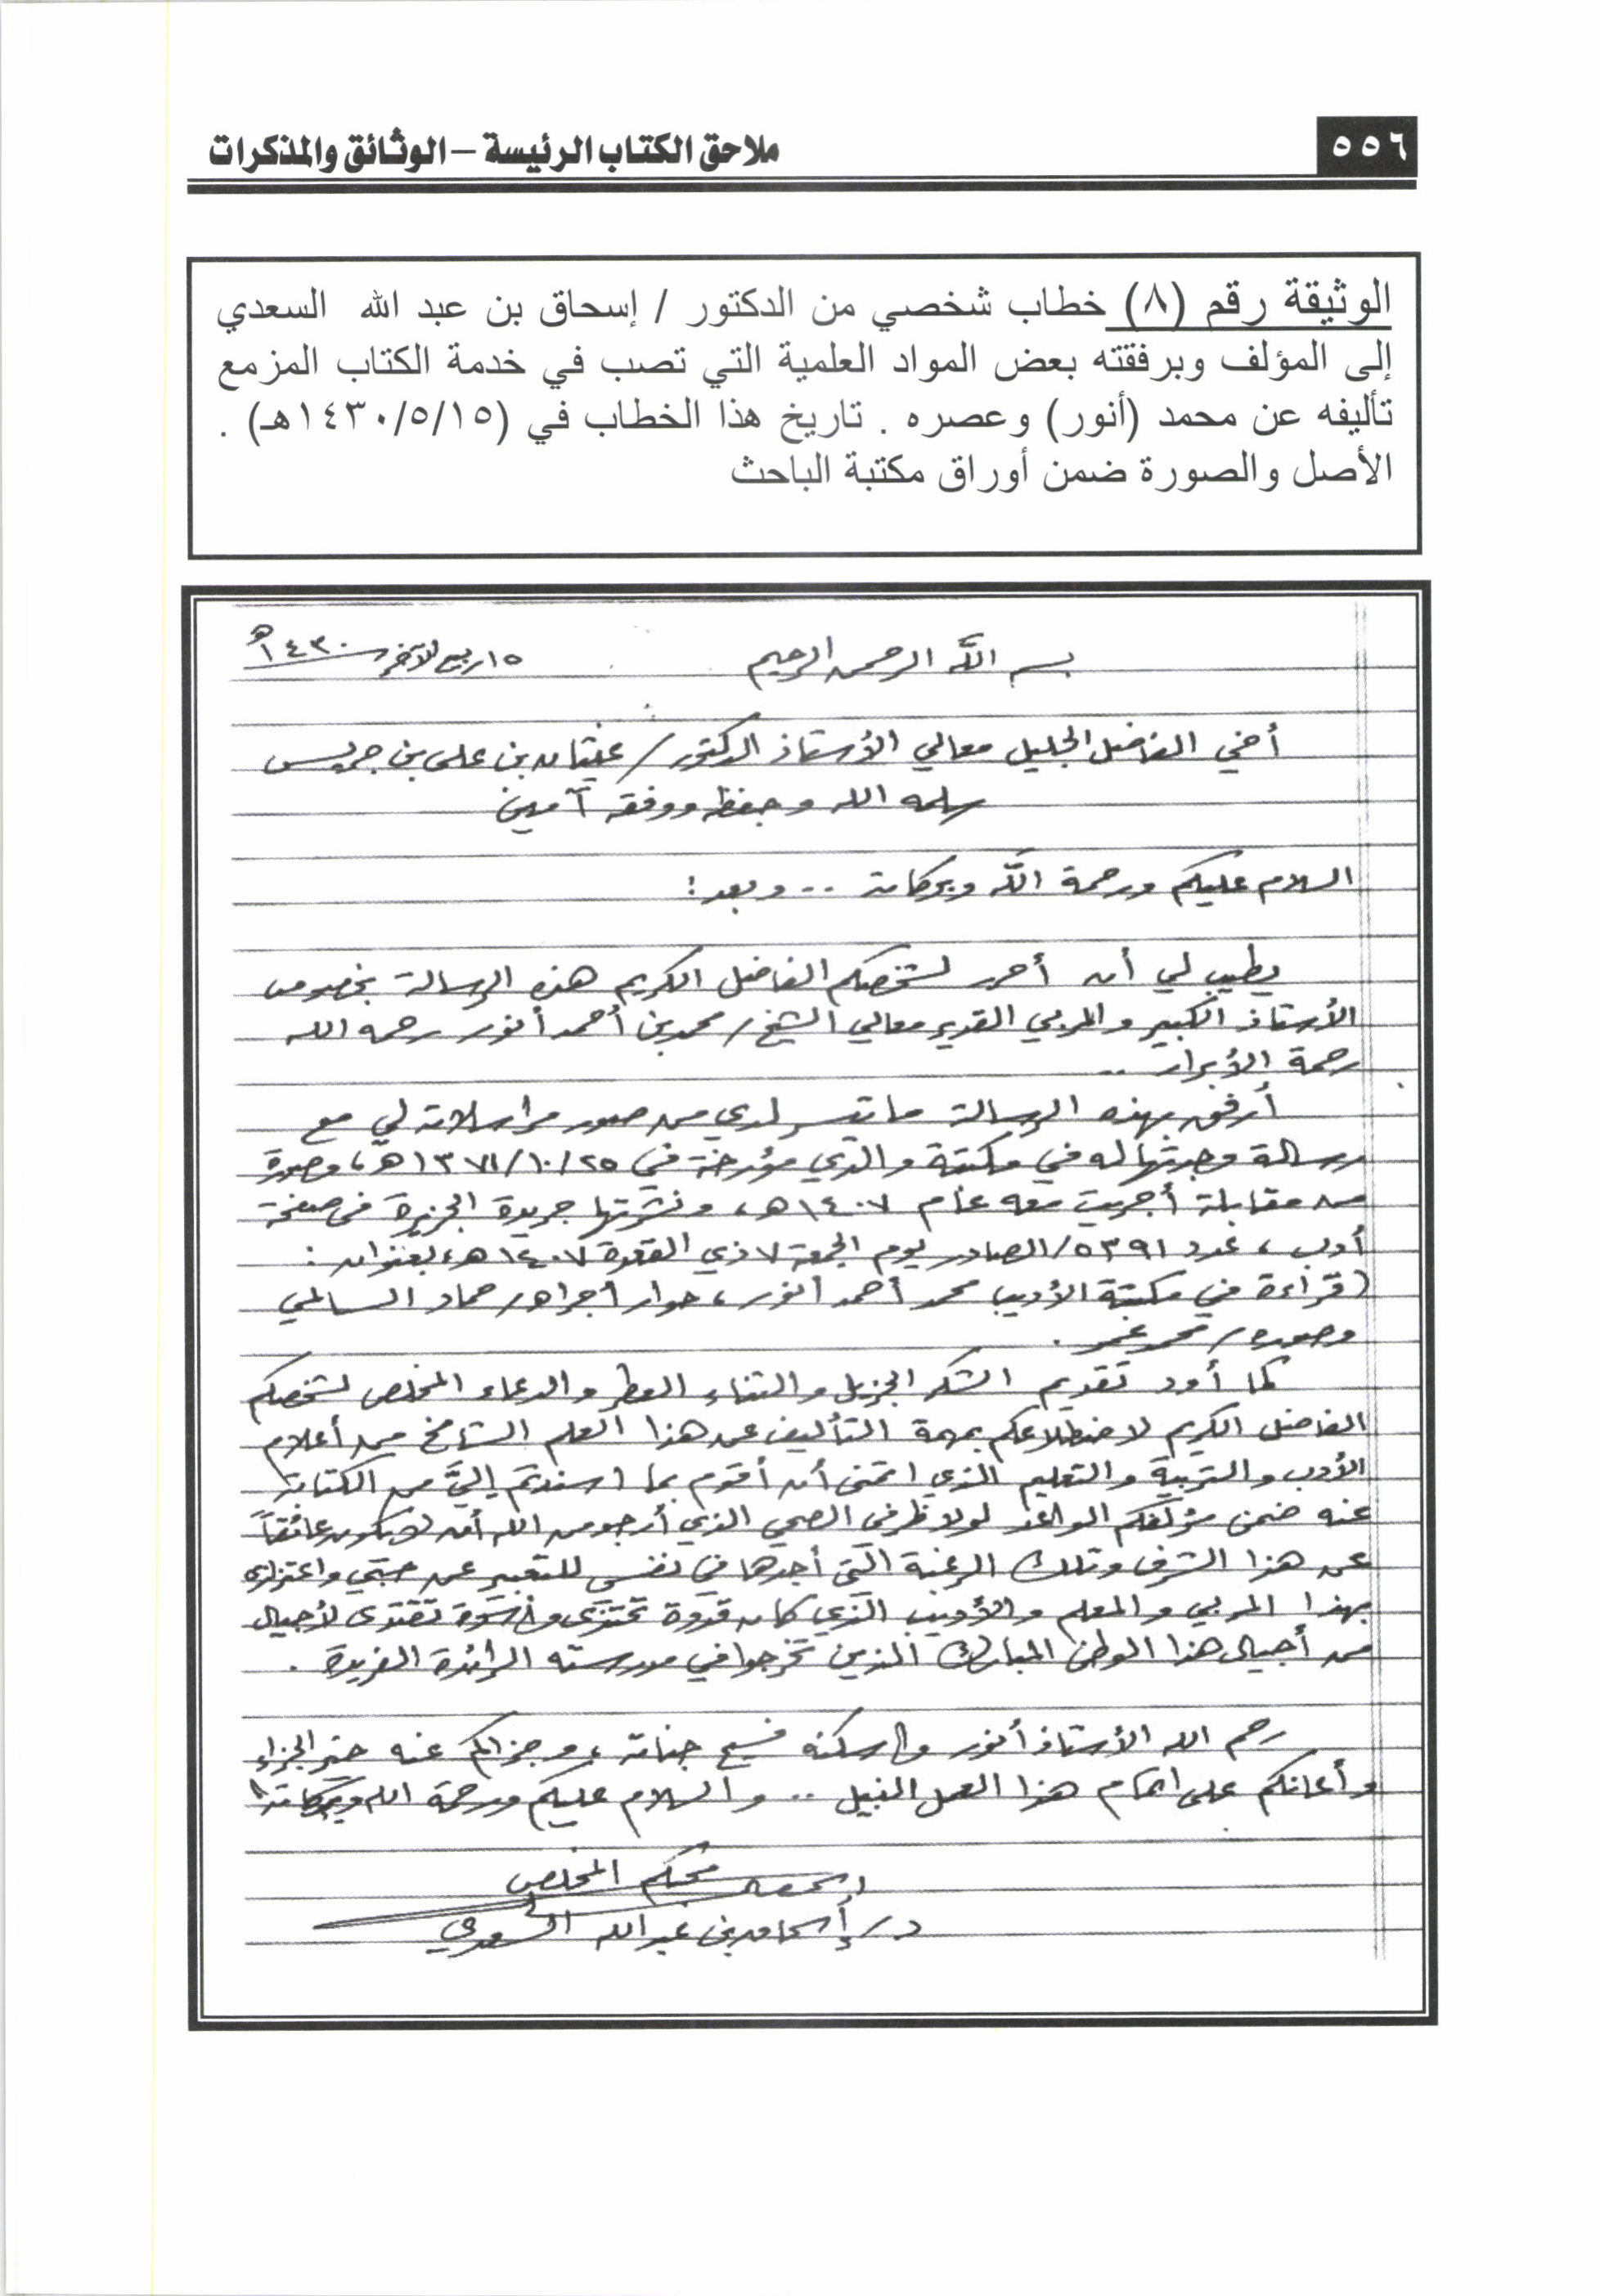 ٥٥٦
ملاحق الكتاب الرئيسة – الوثائق والمذكرات
الوثيقة رقم (٨) خطاب شخصي من الدكتور / إسحاق بن عبد الله السعدي
إلى المؤلف وبرفقته بعض المواد العلمية التي تصب في خدمة الكتاب المزمع
تأليفه عن محمد (أنور) وعصره . تاريخ هذا الخطاب في (١٤٣٠/٥/١٥هـ) .
الأصل والصورة ضمن أوراق مكتبة الباحث
بسم الله الرحمن الرحيم
١٥ ربيع الآخر ١٤٣٠هـ
أخي الفاضل الجليل معالي الأستاذ الدكتور / غيثان بن علي بن جريس
سلمه الله وحفظه ووفقه آمين
السلام عليكم ورحمة الله وبركاته .. وبعد :
يطيب لي أن أحرر لشخصكم الفاضل الكريم هذه الرسالة بخصوص
الأستاذ الكبير والمربي القدير معالي الشيخ / محمد بن أحمد أنور رحمه الله
رحمة الأبرار ..
أرفق بهذه الرسالة ما تيسر لدي من صور مراسلات لي مع
رسالة وجدتها له في مكتبة والدي مؤرخة في ١٣٧١/١٠/٢٥هـ، وصورة
من مقابلة أجريت معه عام ١٤٠٧هـ، ونشرتها جريدة الجزيرة في صفحة
أدب، عدد ٥٣٩١/ الصادر يوم الجمعة ٧ ذي القعدة ١٤٠٧هـ، بعنوان :
(قراءة في مكتبة الأديب محمد أحمد أنور، حوار أجراه / حماد السالمي
وصوره /
كما أود تقديم الشكر الجزيل والثناء العطر والدعاء المخلص لشخصكم
الفاضل الكريم لاضطلاعكم بمهمة التأليف عن هذا العلم الشامخ من أعلام
الأدب والتربية والتعليم الذي اتمنى أن أقوم بما اسندتم إليَّ من الكتابة
عنه ضمن مؤلفكم الواعد لولا ظرفي الصحي الذي أرجو من الله أن لا يكون عائقاً
عن هذا الشرف وتلك الرغبة التي أجدها في نفسي للتعبير عن حبي واعتزازي
بهذا المربي والمعلم والأديب الذي كان قدوة تحتذى وأسوة تقتدى لأجيال
من أجيال هذا الوطن المبارك الذين تخرجوا في مدرسته الرائدة الفريدة .
رحم الله الأستاذ أنور وأسكنه فسيح جناته، وجزاكم عنه خير الجزاء
وأعانكم على اتمام هذا العمل النبيل .. والسلام عليكم ورحمة الله وبركاته،
محبكم المخلص
د / إسحاق بن عبد الله السعدي